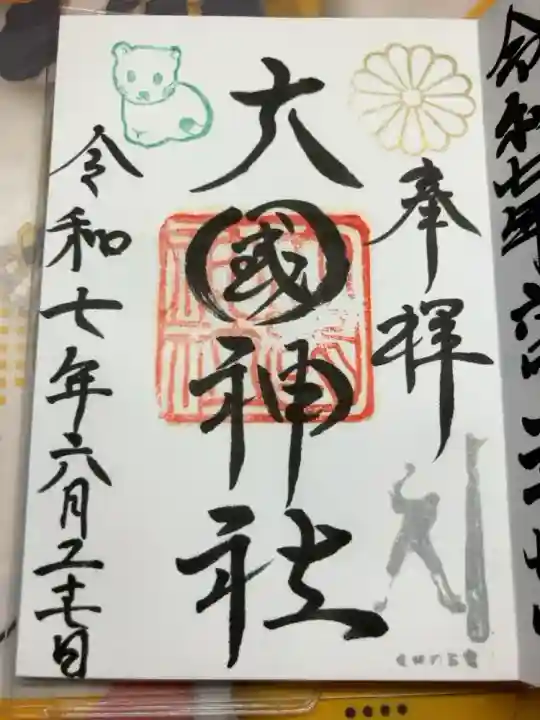 奉拝
大國神社
令和七年六月二十七日
令和七年六